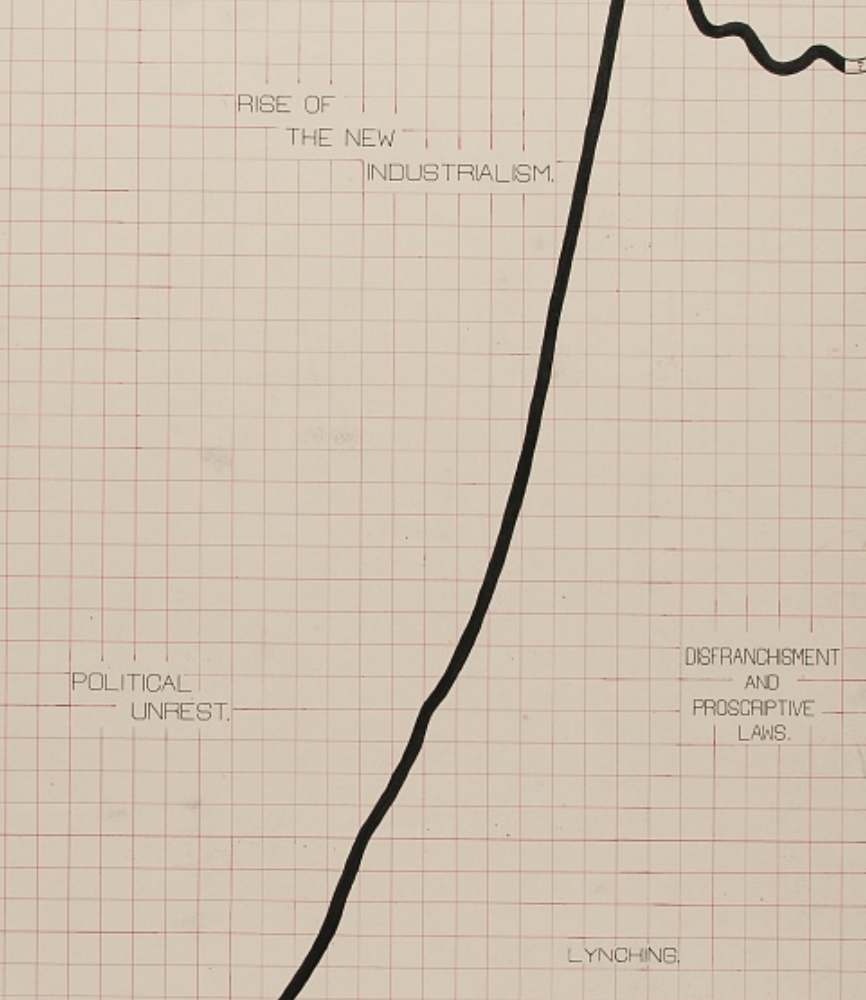 RISE OF
THE NEW
INDUSTRIALISM.
POLITICAL
UNREST.
DISFRANCHISMENT
AND
PROSCRIPTIVE
LAWS.
LYNCHING.